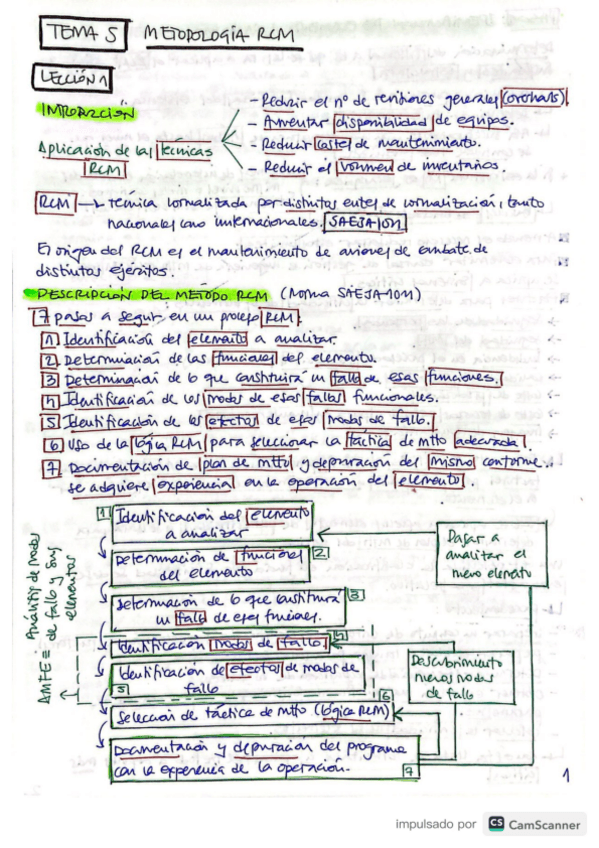 TEMA 5 METODOLOGÍA RCM
LECCIÓN 1
INTRODUCCIÓN
Aplicación de las técnicas RCM
- Reducir el nº de revisiones generales (overhauls).
- Aumentar disponibilidad de equipos.
- Reducir costes de mantenimiento.
- Reducir el volumen de inventarios.
RCM → técnica normalizada por distintos entes de normalización, tanto
nacionales como internacionales. SAEJA1011
El origen del RCM es el mantenimiento de aviones de combate de
distintos ejércitos.
DESCRIPCIÓN DEL METODO RCM (Norma SAESA-1011)
7 pasos a seguir en un proceso RCM.
1 Identificación del elemento a analizar.
2 Determinación de las funciones del elemento.
3 Determinación de lo que constituirá un fallo de esas funciones.
4 Identificación de los modos de esos fallos funcionales.
5 Identificación de los efectos de esos modos de fallo.
6 Uso de la lógica RCM para seleccionar la táctica de mtto adecuada.
7 Documentación de plan de mtto y depuración del mismo conforme
se adquiere experiencia en la operación del elemento.
1 Identificación del elemento
a analizar
Determinación de funciones 2
del elemento
Determinación de lo que constituirá 3
un fallo de esas funciones.
Identificación modos de fallo 4
Identificación de efectos de modos de
5 fallo
6
Selección de táctica de mtto (lógica RCM)
Documentación y depuración del programa
con la experiencia de la operación. 7
Pasar a
analizar el
nuevo elemento
Descubrimiento
nuevos modos
de fallo
AMFE = Análisis de modos
de fallo y sus
elementos
1
impulsado por CS CamScanner